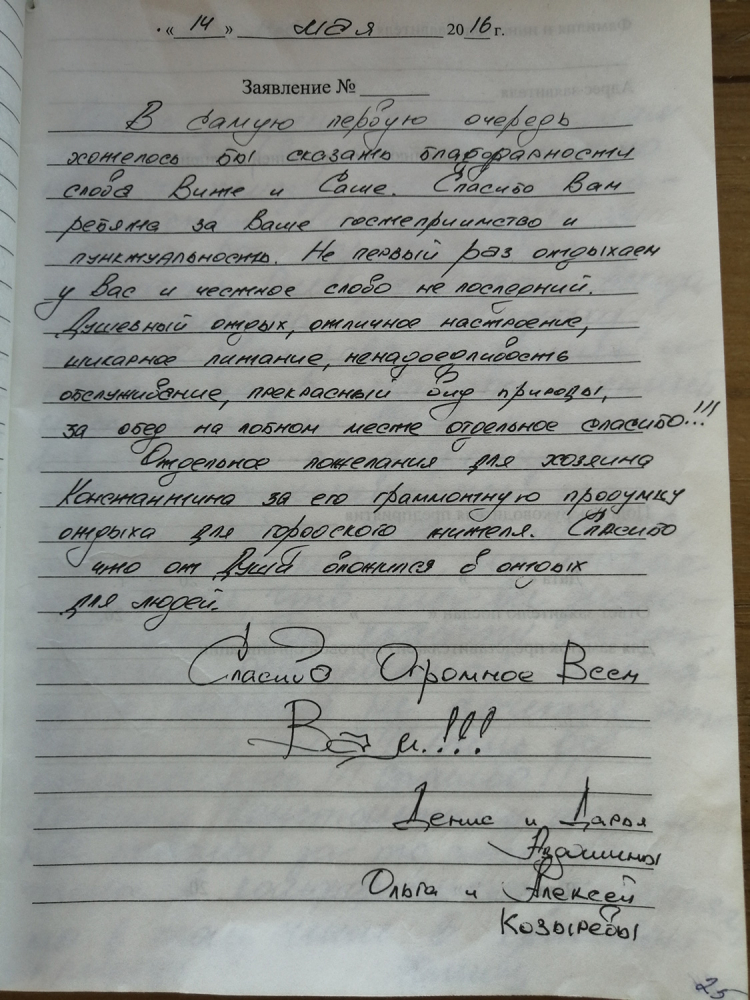 «14» мая 2016 г.
Заявление №
В самую первую очередь
хотелось бы сказать благодарности
слова Вите и Саше. Спасибо Вам
ребята за Ваше гостеприимство и
пунктуальность. Не первый раз отдыхаем
у Вас и честное слово не последний.
Душевный отдых, отличное настроение,
шикарное питание, ненадоедливость
обслуживание, прекрасный вид природы,
за обед на лобном месте отдельное спасибо...!!!
Отдельное пожелания для хозяина
Константина за его граммотную продумку
отдыха для городского жителя. Спасибо
что от Души вложится в отдых
для людей.
Спасибо Огромное Всем
Вам.!!!
Денис и Дарья
Ольга и Алексей
Козыревы
25